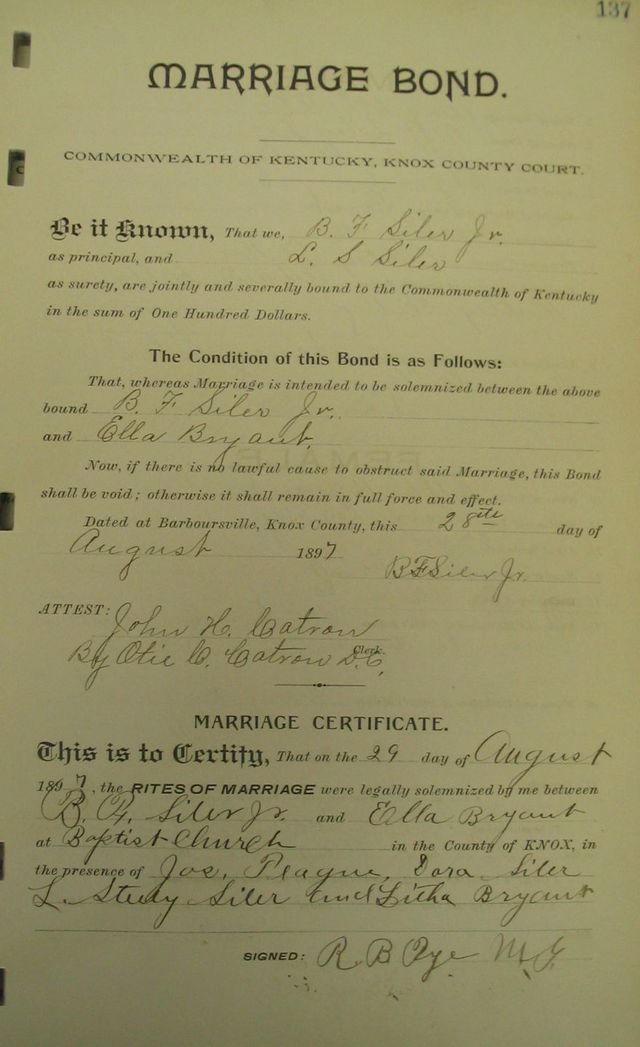 137
MARRIAGE BOND.
COMMONWEALTH OF KENTUCKY, KNOX COUNTY COURT.
Be it Known, That we, B. F Siler Jr.
as principal, and L. S Siler
as surety, are jointly and severally bound to the Commonwealth of Kentucky
in the sum of One Hundred Dollars.
The Condition of this Bond is as Follows:
That, whereas Marriage is intended to be solemnized between the above
bound B. F Siler Jr.
and Ella Bryant.
Now, if there is no lawful cause to obstruct said Marriage, this Bond
shall be void; otherwise it shall remain in full force and effect.
Dated at Barboursville, Knox County, this 28th day of
August 1897
B F Siler Jr.
ATTEST: John H. Catron
By Otie C. Catron D.C. Clerk.
MARRIAGE CERTIFICATE.
This is to Certify, That on the 29 day of August
1897, the RITES OF MARRIAGE were legally solemnized by me between
B. F. Siler Jr. and Ella Bryant
at Baptist Church in the County of KNOX, in
the presence of Jos. Teague, Dora Siler
L. Steely Siler and Litha Bryant
SIGNED: R B M G